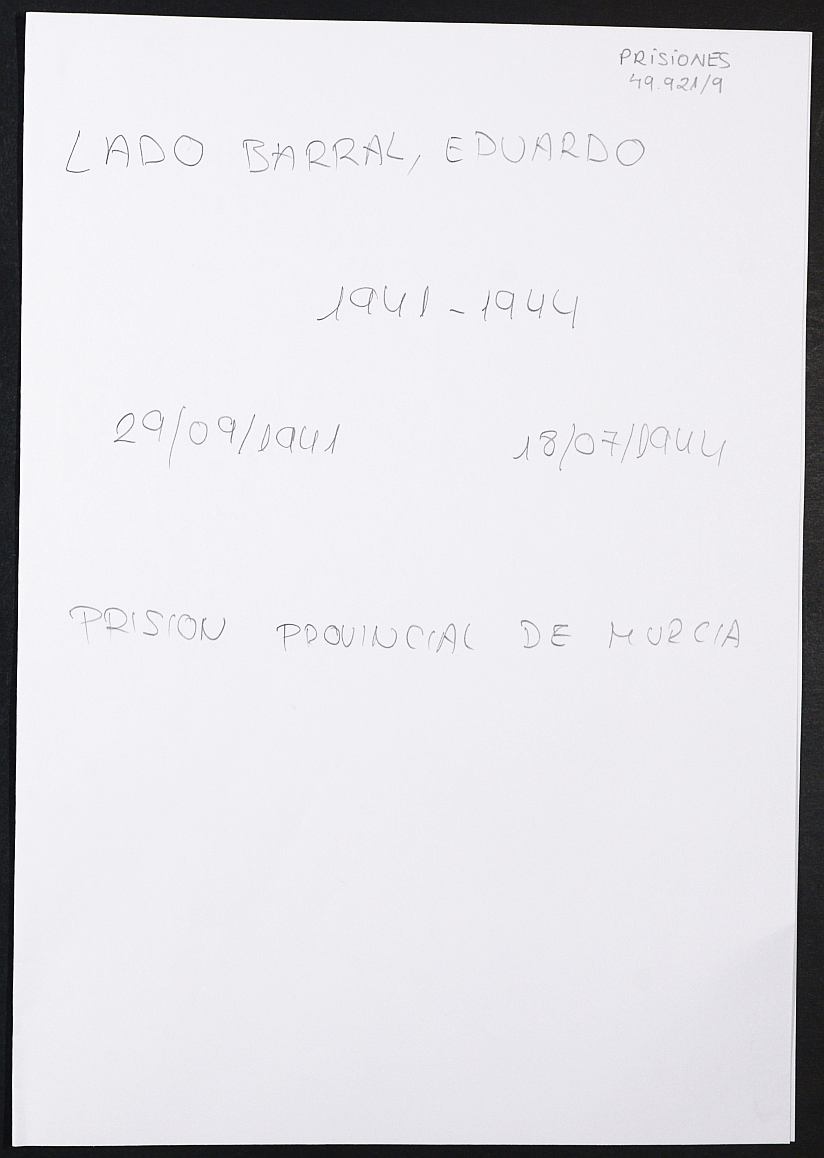 PRISIONES
49.921/9
LADO BARRAL, EDUARDO
1941-1944
29/09/1941 18/07/1944
PRISION PROVINCIAL DE MURCIA